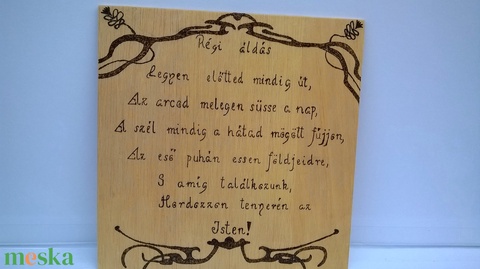 Régi áldás
Legyen előtted mindig út,
Az arcad melegen süsse a nap,
A szél mindig a hátad mögött fújjon,
Az eső puhán essen földjeidre,
S amíg találkozunk,
Hordozzon tenyerén az
Isten!
meska